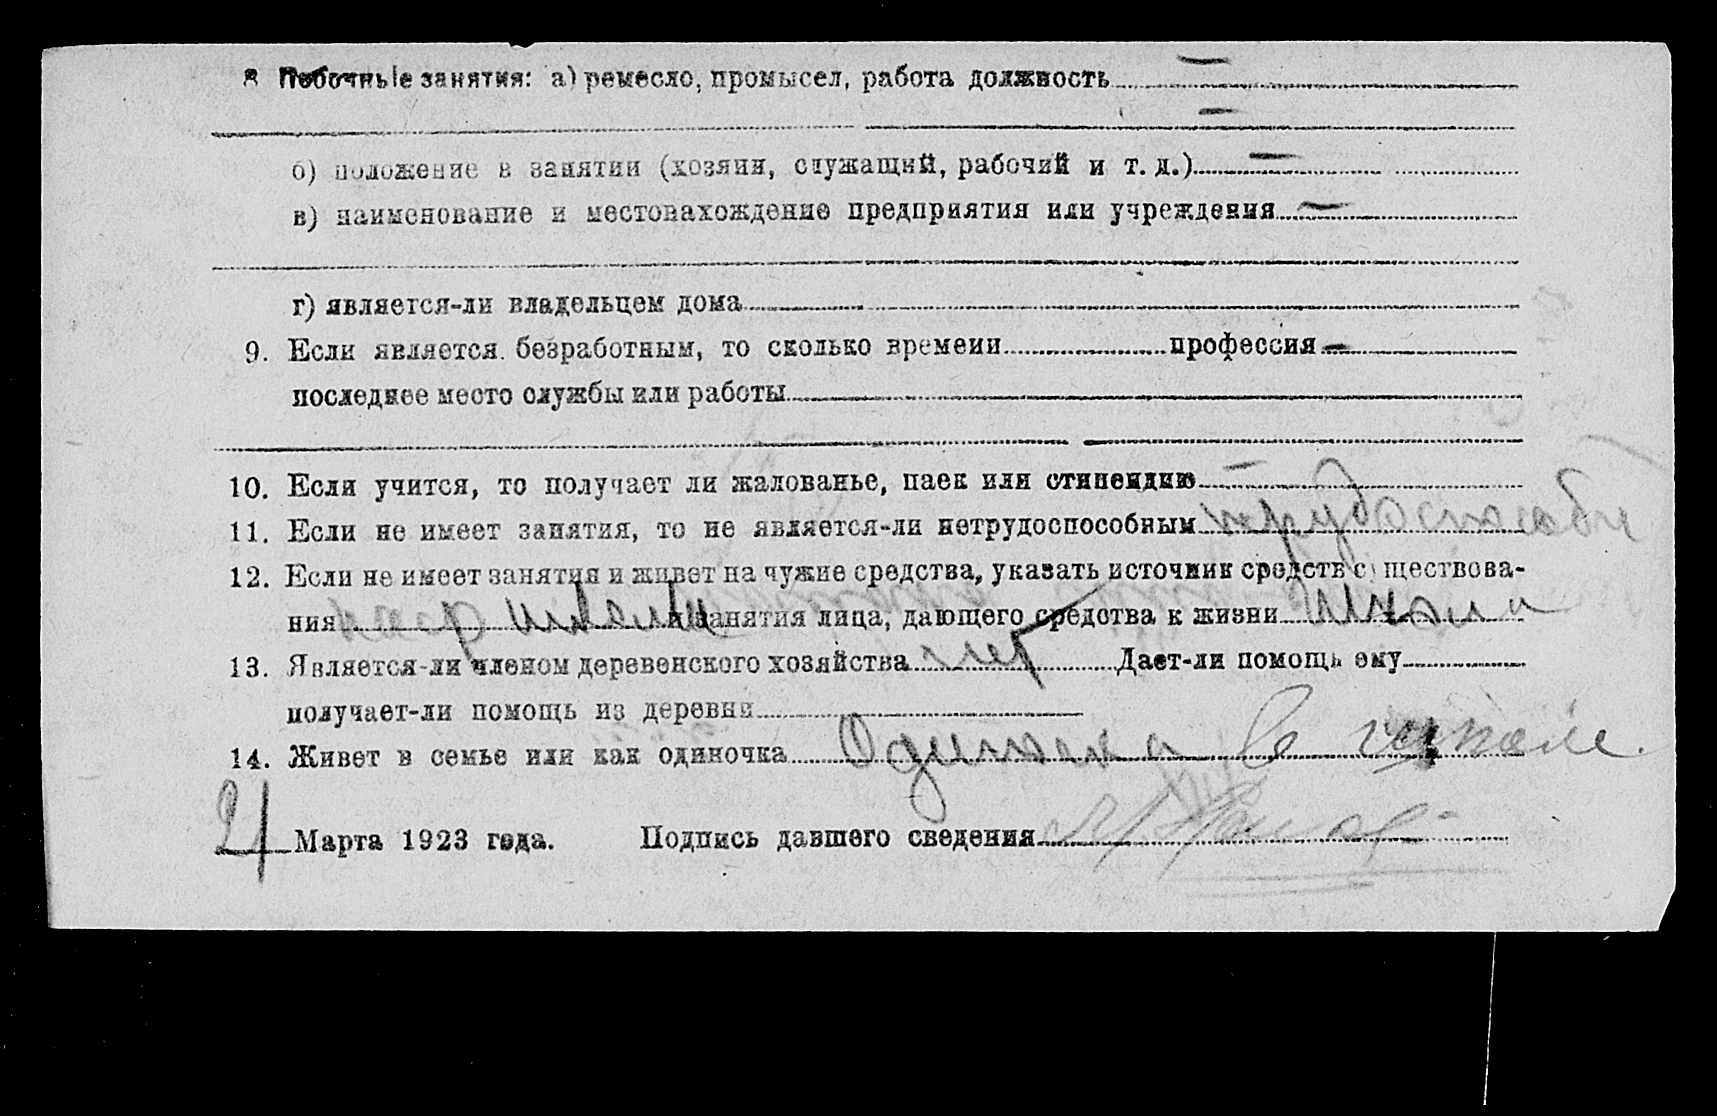 8 Побочные занятия: а) ремесло, промысел, работа должность —
—
б) положение в занятии (хозяин, служащий, рабочий и т. д.) —
в) наименование и местонахождение предприятия или учреждения —
г) является-ли владельцем дома
9. Если является безработным, то сколько времени профессия —
последнее место службы или работы
10. Если учится, то получает ли жалованье, паек или стипендию —
11. Если не имеет занятия, то не является-ли нетрудоспособным
12. Если не имеет занятия и живет на чужие средства, указать источник средств существова-
ния и занятия лица, дающего средства к жизни школа
13. Является-ли членом деревенского хозяйства нет Дает-ли помощь ему
получает-ли помощь из деревни
14. Живет в семье или как одиночка Одиночка в
21 Марта 1923 года. Подпись давшего сведения